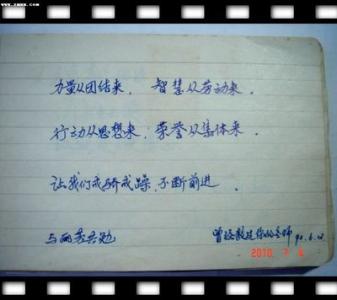 力量从团结来，智慧从劳动来，
行动从思想来，荣誉从集体来。
让我们戒骄戒躁，不断前进。
与丽芳共勉 曾经教过你的老师